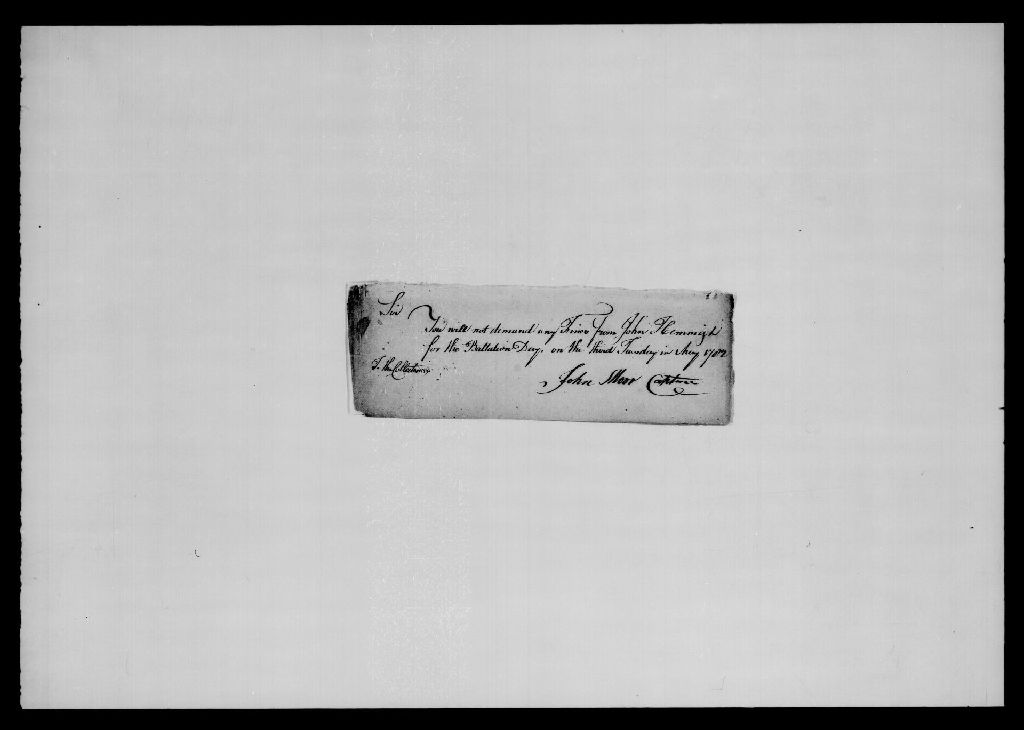 Sir
You will not demand any Fines from John Hemmigh
for the Battalion Day, on the third Tuesday in May 1782
To the Collector
John Moor Captain